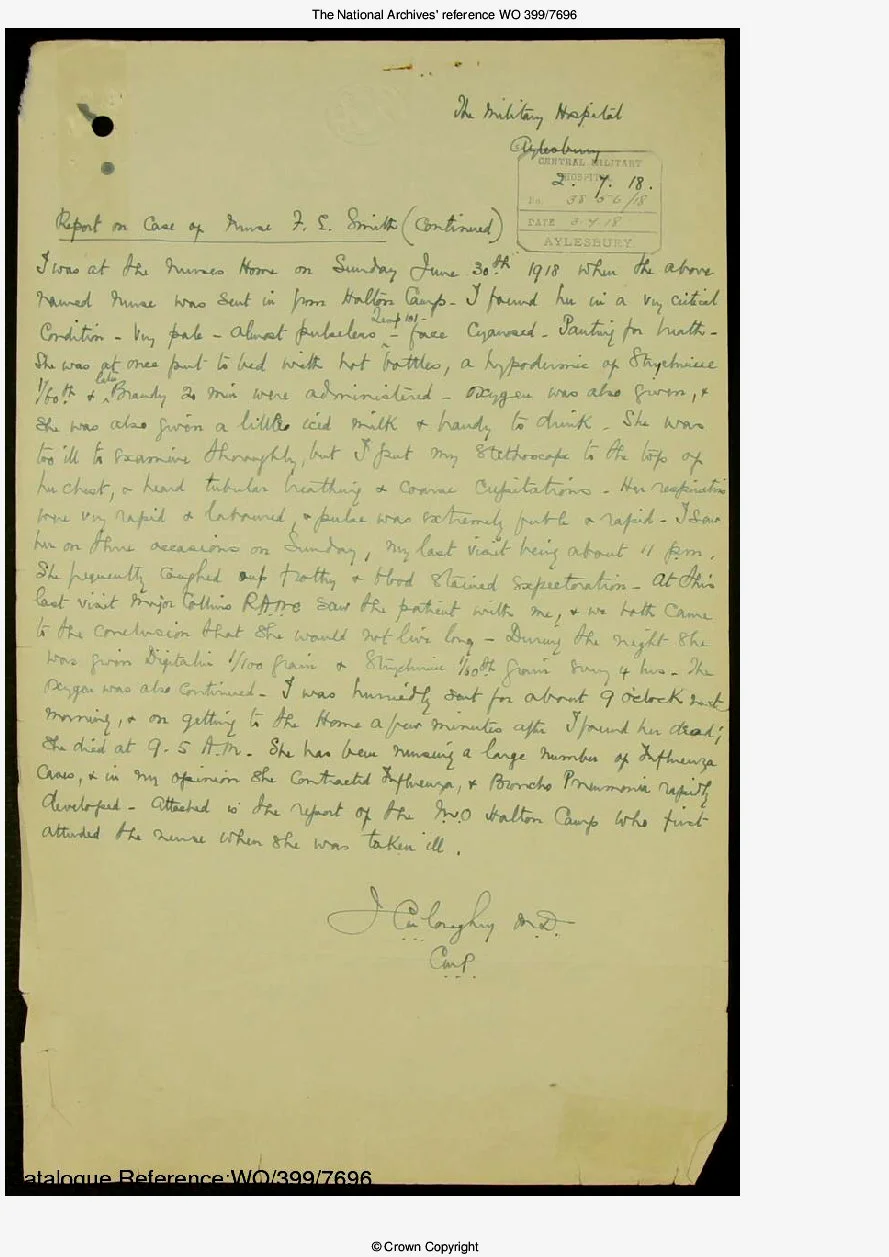 The National Archives' reference WO 399/7696
The Military Hospital
Aylesbury
CENTRAL MILITARY
HOSPITAL
2. 7. 18.
No 38 56/18
DATE 3-7-18
AYLESBURY
Report on Case of Nurse F. E. Smith (Continued)
I was at the Nurses Home on Sunday June 30th 1918 when the above
named Nurse was sent in from Halton Camp - I found her in a very critical
Temp 101 -
Condition - Very pale - almost pulseless - face Cyanosed - Panting for breath -
She was at once put to bed with hot bottles, a hypodermic of Strychnine
1/60th & later Brandy 20 min were administered - Oxygen was also given, &
she was also given a little iced milk & brandy to drink - She was
too ill to examine thoroughly, but I put my Stethoscope to the top of
her chest, & heard tubular breathing & coarse Crepitations - Her respirations
were very rapid & laboured, & pulse was extremely feeble & rapid - I saw
her on three occasions on Sunday, my last visit being about 11 p.m.
She frequently coughed up frothy & blood stained expectoration - At this
last visit Major Collins RAMC saw the patient with me, & we both came
to the conclusion that she would not live long - During the night she
was given Digitalin 1/100 grain & Strychnine 1/60th grain every 4 hrs - The
oxygen was also continued - I was hurriedly sent for about 9 o'clock next
morning, & on getting to the Home a few minutes after I found her dead;
she died at 9-5 A.M. She has been nursing a large number of Influenza
Cases, & in my opinion she contracted Influenza, & Broncho Pneumonia rapidly
developed - Attached is the report of the M.O Halton Camp who first
attended the nurse when she was taken ill.
M.D.
C.M.P.
atalogue Reference:WO/399/7696
© Crown Copyright